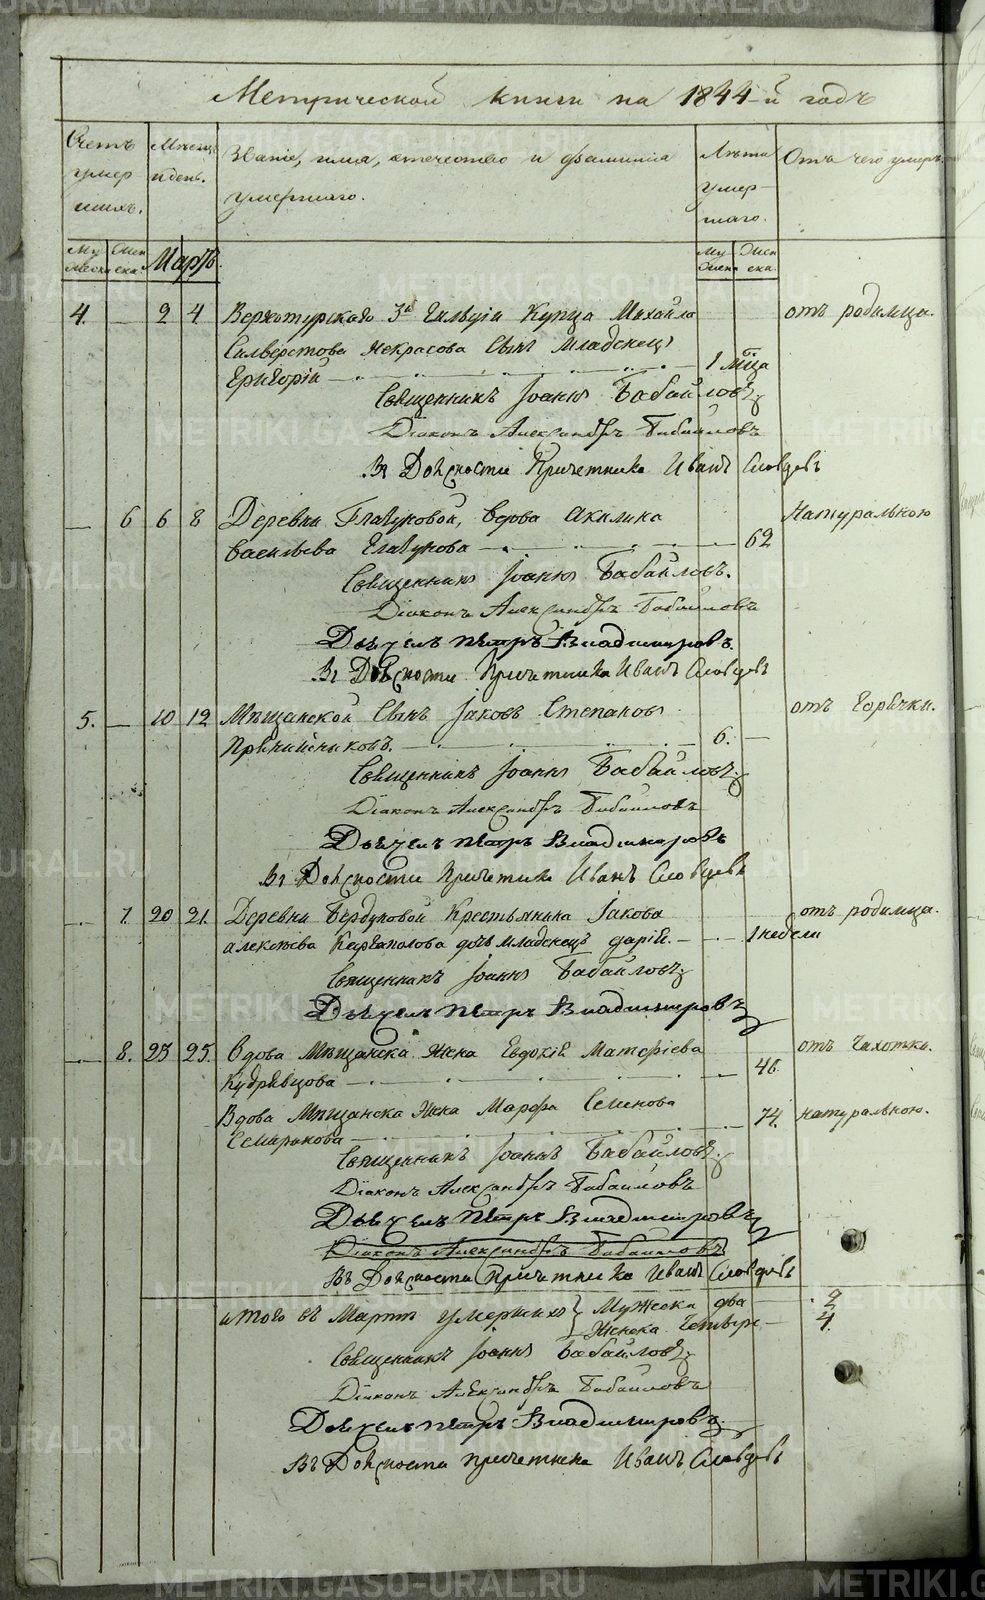 Метрической книги на 1844-й годъ
Счетъ умершихъ.
Мѣсяцъ и день.
Званіе, имя, отечество и фамилія умершаго.
Лѣта умершаго.
Отъ чего умеръ.
Мужеска Женска.
Мартъ.
Мужеска Женска
4. — 2 4 Верхотурскаго 3й Гильдіи Купца Михайла отъ родимца.
Силверстова Некрасова Сынъ младенецъ
Григорій — 1 мѣсца
Священникъ Іоаннъ Бабайловъ
Діаконъ Александръ Бабайловъ
Въ Должности Причетника Иванъ Словцовъ
— 6 6 8 Деревни Глазуновой, вдова Акилина Натуральною
Васильева Глазунова — 62
Священникъ Іоаннъ Бабайловъ.
Діаконъ Александръ Бабайловъ
Дьячекъ Петръ Владимировъ.
Въ Должности Причетника Иванъ Словцовъ
5. — 10 12 Мѣщанской Сынъ Іаковъ Степановъ отъ Горячки.
6. —
Священникъ Іоаннъ Бабайловъ
Діаконъ Александръ Бабайловъ
Дьячекъ Петръ Владимировъ
Въ Должности Причетника Иванъ Словцовъ
— 7. 20 21. Деревни Бердюговой Крестьянина Іакова отъ родимца.
Алексѣева Каргаполова дочь младенецъ Дарія. — 1 недели
Священникъ Іоаннъ Бабайловъ
Дьячекъ Петръ Владимировъ
— 8. 23 25. Вдова Мѣщанска Жена Евдокія Матфіева отъ Чахотки.
Кудрявцова — 46.
Вдова Мѣщанска Жена Марфа Семенова 74. натуральною.
Священникъ Іоаннъ Бабайловъ.
Діаконъ Александръ Бабайловъ
Дьячекъ Петръ Владимировъ
Діаконъ Александръ Бабайловъ
Въ Должности Причетника Иванъ Словцовъ
итого въ Мартѣ умершихъ } Мужеска два — 2
Женска Четыре — 4.
Священникъ Іоаннъ Бабайловъ
Діаконъ Александръ Бабайловъ
Дьячекъ Петръ Владимировъ.
Въ Должности Причетника Иванъ Словцовъ
METRIKI.GASO-URAL.RU